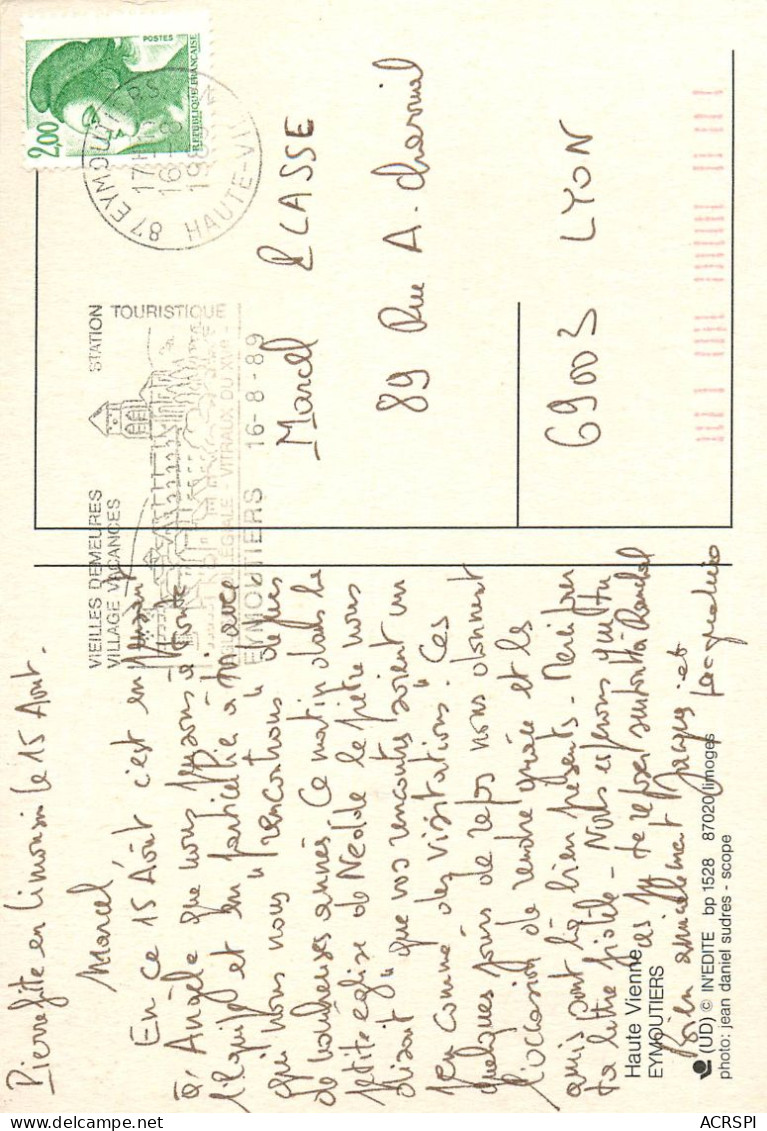 Pierrefite en Limousin le 15 Août.
Marcel,
En ce 15 Août c'est en pensant
à Angèle que nous pensons à toute
l'équipe et en particulier à toi avec
qui nous nous "rencontrons" depuis
de nombreuses années. Ce matin dans la
petite église de Nedde le prêtre nous
disait "que vos rencontres soient un
peu comme des visitations". Ces
quelques jours de repos nous donnent
l'occasion de rendre grâce et les
amis sont là bien présents. Merci pour
ta lettre fidèle. Nous espérons que tu
as pu te reposer
Bien amicalement Jacques et
Jacqueline
Haute Vienne
EYMOUTIERS
(UD) © IN'EDITE bp 1528 87020 limoges
photo: jean daniel sudres - scope
VIEILLES DEMEURES
VILLAGE VACANCES
STATION
TOURISTIQUE
COLLEGIALE - VITRAUX DU XVe -
EYMOUTIERS 16-8-89
87 EYMOUTIERS
17H
16-8
19
HAUTE-VIENNE
2,00
POSTES
REPUBLIQUE FRANÇAISE
Marcel
89 Rue A.
69003 LYON
ACRSPI